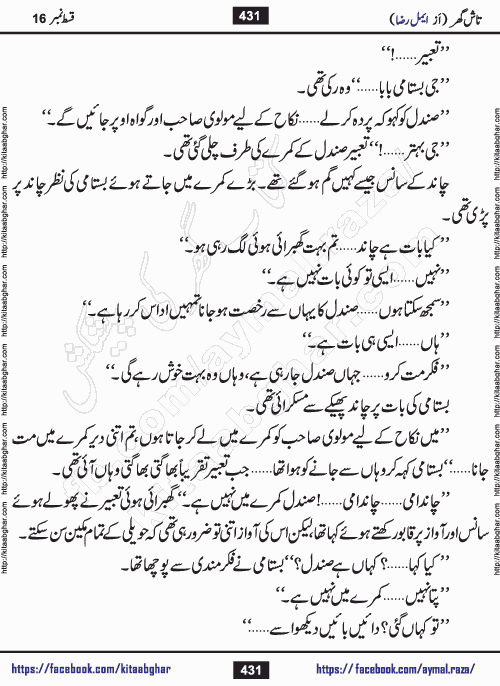 تاش گھر (از ایمل رضا) 431 قسط نمبر 16
’’تعبیر......!‘‘
’’جی بستامی بابا......‘‘ وہ رکی تھی۔
’’صندل کو کہو کہ پردہ کر لے...... نکاح کے لیے مولوی صاحب اور گواہ اوپر جائیں گے۔‘‘
’’جی بہتر......!‘‘ تعبیر صندل کے کمرے کی طرف چلی گئی تھی۔
چاند کے سانس جیسے کہیں گم ہو گئے تھے۔ بڑے کمرے میں جاتے ہوئے بستامی کی نظر چاند پر
پڑی تھی۔
’’کیا بات ہے چاند...... تم بہت گھبرائی ہوئی لگ رہی ہو۔‘‘
’’نہیں...... ایسی تو کوئی بات نہیں ہے۔‘‘
’’سمجھ سکتا ہوں...... صندل کا یہاں سے رخصت ہو جانا تمہیں اداس کر رہا ہے۔‘‘
’’ہاں...... ایسی ہی بات ہے۔‘‘
’’فکر مت کرو...... جہاں صندل جا رہی ہے، وہاں وہ بہت خوش رہے گی۔‘‘
بستامی کی بات پر چاند پھیکے سے مسکرائی تھی۔
’’میں نکاح کے لیے مولوی صاحب کو کمرے میں لے کر جاتا ہوں، تم اتنی دیر کمرے میں مت
جانا......‘‘ بستامی کہہ کر وہاں سے جانے کو ہوا تھا...... جب تعبیر تقریباً بھاگتی بھاگتی وہاں آئی تھی۔
’’چاند امی...... چاند امی......! صندل کمرے میں نہیں ہے۔‘‘ گھبرائی ہوئی تعبیر نے پھولے ہوئے
سانس اور آواز پر قابو رکھتے ہوئے کہا تھا، لیکن اس کی آواز اتنی تو ضرور ہی تھی کہ حویلی کے تمام مکین سن سکتے۔
’’کیا کہا......؟ کہاں ہے صندل؟‘‘ بستامی نے فکر مندی سے پوچھا تھا۔
’’پتا نہیں...... کمرے میں نہیں ہے۔‘‘
’’تو کہاں گئی؟ دائیں بائیں دیکھو اسے......‘‘
https://facebook.com/kitaabghar 431 https://facebook.com/aymal.raza/
http://kitaabghar.com http://kitaabghar.com http://kitaabghar.com http://kitaabghar.com http://kitaabghar.com http://kitaabghar.com
http://kitaabghar.com http://kitaabghar.com http://kitaabghar.com http://kitaabghar.com http://kitaabghar.com http://kitaabghar.com